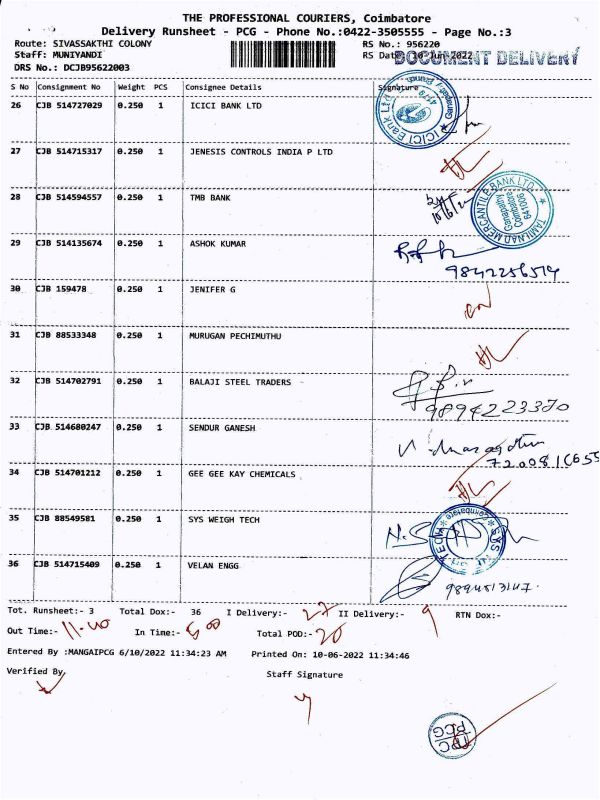 THE PROFESSIONAL COURIERS, Coimbatore
Delivery Runsheet - PCG - Phone No.:0422-3505555 - Page No.:3
Route: SIVASSAKTHI COLONY RS No.: 956220
Staff: MUNIYANDI RS Date: 10-Jun-2022
DOCUMENT DELIVERY
DRS No.: DCJB95622003
S No Consignment No Weight PCS Consignee Details Signature
26 CJB 514727029 0.250 1 ICICI BANK LTD
ICICI Bank Ltd
27 CJB 514715317 0.250 1 JENESIS CONTROLS INDIA P LTD
28 CJB 514594557 0.250 1 TMB BANK
10/6/22
TAMILNAD MERCANTILE BANK LTD.
Ganapathy
Coimbatore
641006
29 CJB 514135674 0.250 1 ASHOK KUMAR
9842256514
30 CJB 159478 0.250 1 JENIFER G
31 CJB 88533348 0.250 1 MURUGAN PECHIMUTHU
32 CJB 514702791 0.250 1 BALAJI STEEL TRADERS
9894223370
33 CJB 514680247 0.250 1 SENDUR GANESH
34 CJB 514701212 0.250 1 GEE GEE KAY CHEMICALS
35 CJB 88549581 0.250 1 SYS WEIGH TECH
36 CJB 514715409 0.250 1 VELAN ENGG
Tot. Runsheet:- 3 Total Dox:- 36 I Delivery:- 27 II Delivery:- 9 RTN Dox:-
Out Time:- 11.40 In Time:- 5.00 Total POD:- 20
Entered By :MANGAIPCG 6/10/2022 11:34:23 AM Printed On: 10-06-2022 11:34:46
Verified By Staff Signature
TPC
PCG